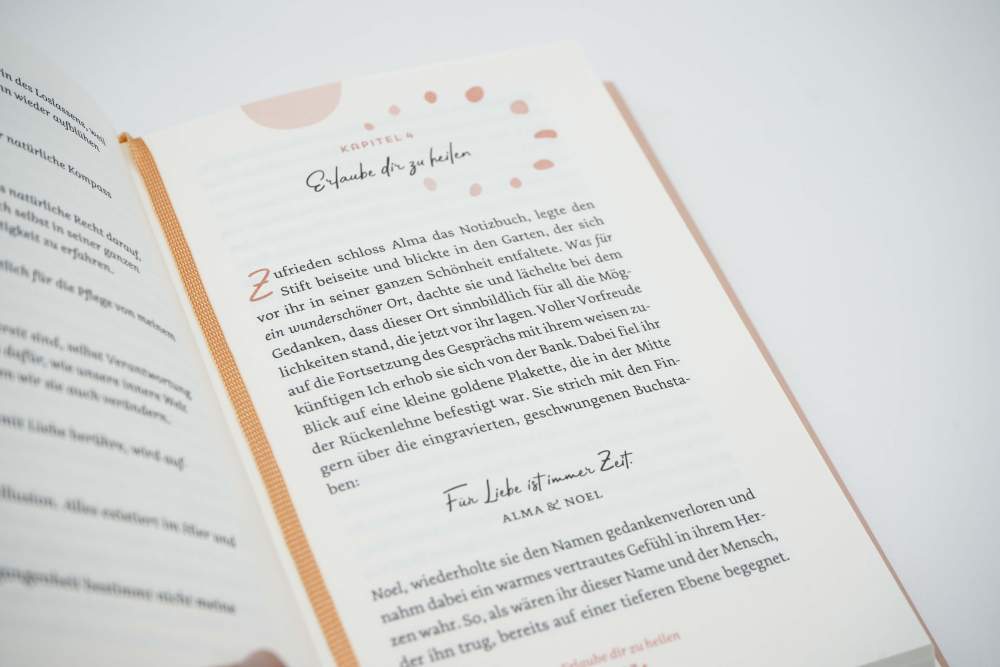 in des Loslassens, weil
nn wieder aufblühen
r natürliche Kompass
s natürliche Recht darauf,
ch selbst in seiner ganzen
tigkeit zu erfahren.
tlich für die Pflege von meinem
ereit sind, selbst Verantwortung
dafür, wie unsere innere Welt
en wir sie auch verändern.
mit Liebe berühre, wird auf-
Illusion. Alles existiert im Hier und
bestimmt nicht meine
KAPITEL 4
Erlaube dir zu heilen
Zufrieden schloss Alma das Notizbuch, legte den
Stift beiseite und blickte in den Garten, der sich
vor ihr in seiner ganzen Schönheit entfaltete. Was für
ein wunderschöner Ort, dachte sie und lächelte bei dem
Gedanken, dass dieser Ort sinnbildlich für all die Mög-
lichkeiten stand, die jetzt vor ihr lagen. Voller Vorfreude
auf die Fortsetzung des Gesprächs mit ihrem weisen zu-
künftigen Ich erhob sie sich von der Bank. Dabei fiel ihr
Blick auf eine kleine goldene Plakette, die in der Mitte
der Rückenlehne befestigt war. Sie strich mit den Fin-
gern über die eingravierten, geschwungenen Buchsta-
ben:
Für Liebe ist immer Zeit.
ALMA & NOEL
Noel, wiederholte sie den Namen gedankenverloren und
nahm dabei ein warmes vertrautes Gefühl in ihrem Her-
zen wahr. So, als wären ihr dieser Name und der Mensch,
der ihn trug, bereits auf einer tieferen Ebene begegnet.
Erlaube dir zu heilen